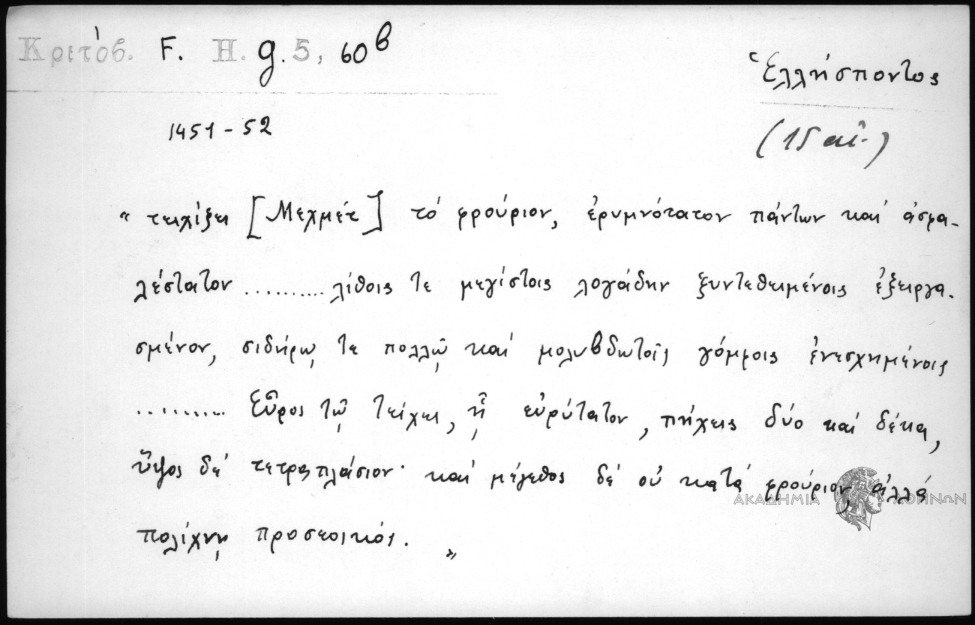 Κριτόβ. F. H. g. 5, 60β
Ἑλλήσποντος
1451-52
(15 αἰ.)
" τειχίζει [Μεχμέτ] τό φρούριον, ἐρυμνότατον πάντων καί ἀσφα-
λέστατον .......... λίθοις τε μεγίστοις λογάδην ξυντεθειμένοις ἐξειργα-
σμένον, σιδήρῳ τε πολλῷ καί μολυβδωτοῖς γόμφοις ἐνεσχημένοις
.......... Εὖρος τῷ τείχει, ᾗ εὐρύτατον, πήχεις δύο καί δέκα,
ὕψος δέ τετραπλάσιον· καί μέγεθος δέ οὐ κατά φρούριον, ἀλλά
ΑΚΑΔΗΜΙΑ ΑΘΗΝΩΝ
πολίχνῃ προσεοικός. "